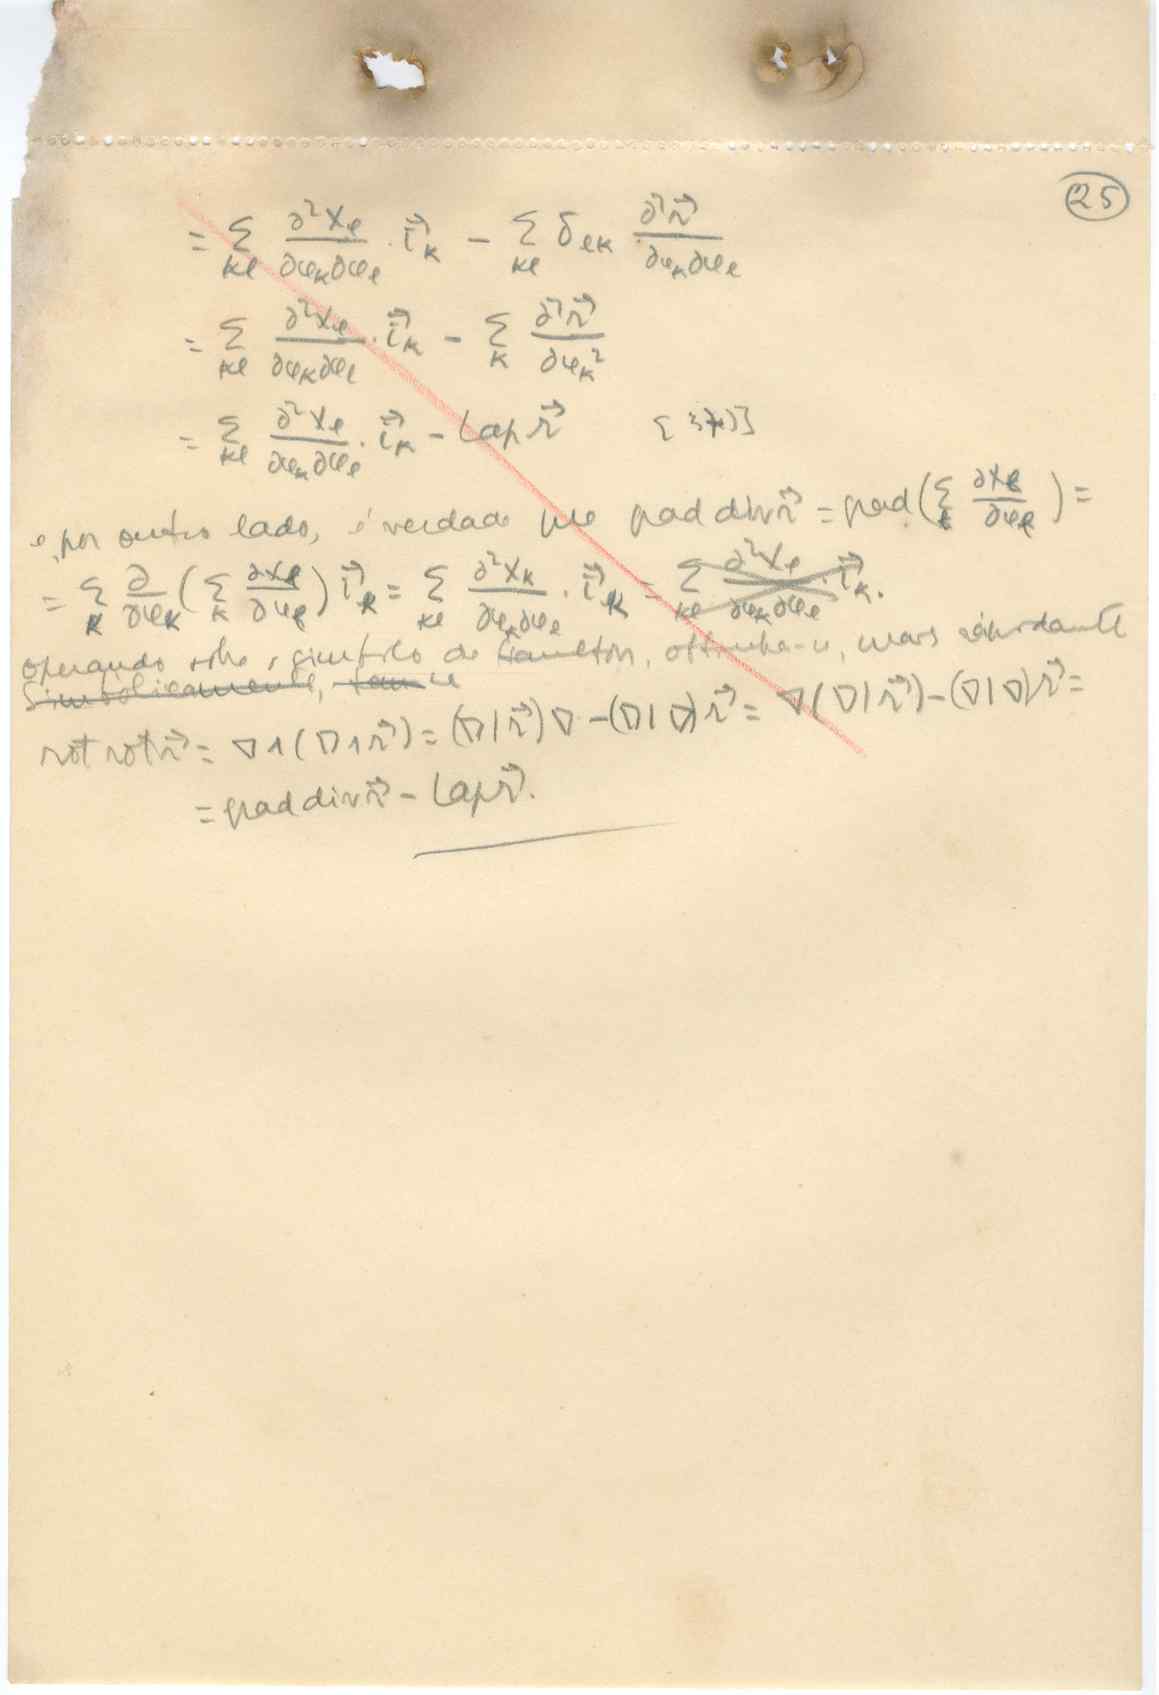 25
= Σ_{kl} ∂²X_l/∂x_k∂x_l · i⃗_k − Σ_{kl} δ_{lk} ∂²r⃗/∂x_k∂x_l
= Σ_{kl} ∂²X_l/∂x_k∂x_l · i⃗_k − Σ_k ∂²r⃗/∂x_k²
= Σ_{kl} ∂²X_l/∂x_k∂x_l · i⃗_k − Lap r⃗
e, por outro lado, é verdade que grad div r⃗ = grad (Σ_l ∂X_l/∂x_l) =
= Σ_k ∂/∂x_k (Σ_k ∂X_l/∂x_l) i⃗_k = Σ_{kl} ∂²X_k/∂x_k∂x_l · i⃗_k = Σ_{kl} ∂²X_l/∂x_k∂x_l · i⃗_k.
Operando sobre o símbolo de Hamilton, obtinha-se, mais ràpidamente
Simbolicamente, se
rot rot r⃗ = ∇∧(∇∧r⃗) = (∇|r⃗)∇ − (∇|∇)r⃗ = ∇(∇|r⃗) − (∇|∇)r⃗ =
= grad div r⃗ − Lap r⃗.